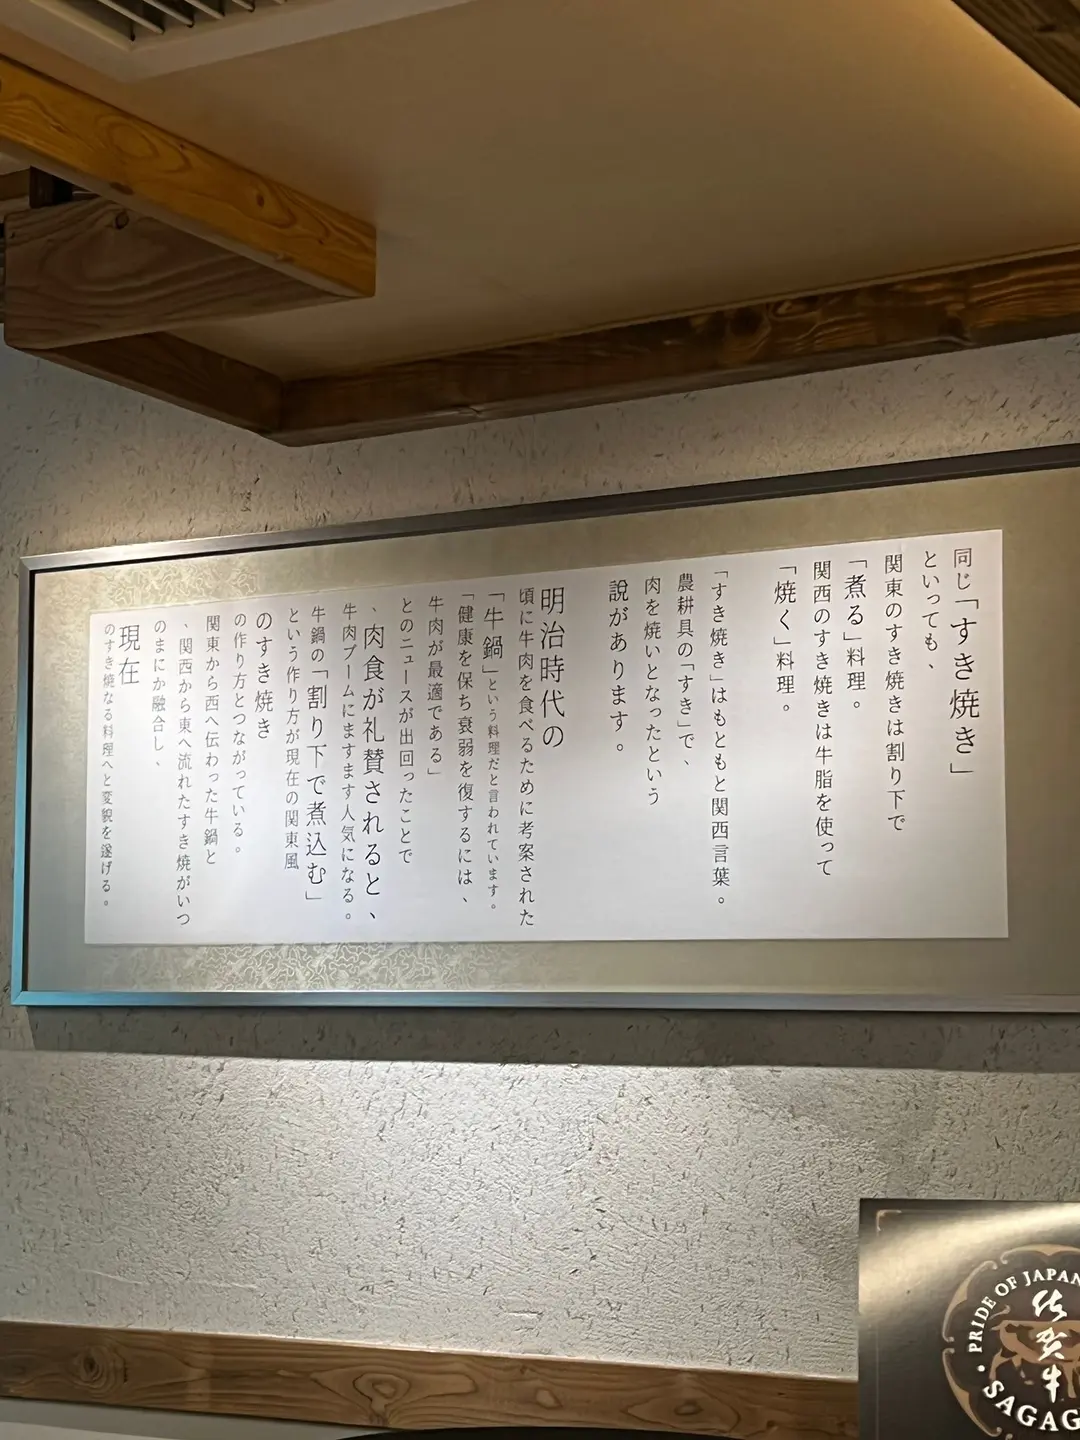 同じ「すき焼き」
といっても、
関東のすき焼きは割り下で
「煮る」料理。
関西のすき焼きは牛脂を使って
「焼く」料理。
「すき焼き」はもともと関西言葉。
農耕具の「すき」で、
肉を焼いとなったという
説があります。
明治時代の
頃に牛肉を食べるために考案された
「牛鍋」という料理だと言われています。
「健康を保ち衰弱を復するには、
牛肉が最適である」
とのニュースが出回ったことで
、肉食が礼賛されると、
牛肉ブームにますます人気になる。
牛鍋の「割り下で煮込む」
という作り方が現在の関東風
のすき焼き
の作り方とつながっている。
関東から西へ伝わった牛鍋と
、関西から東へ流れたすき焼がいつ
のまにか融合し、
現在
のすき焼なる料理へと変貌を遂げる。
PRIDE OF JAPAN
佐賀牛
SAGAG